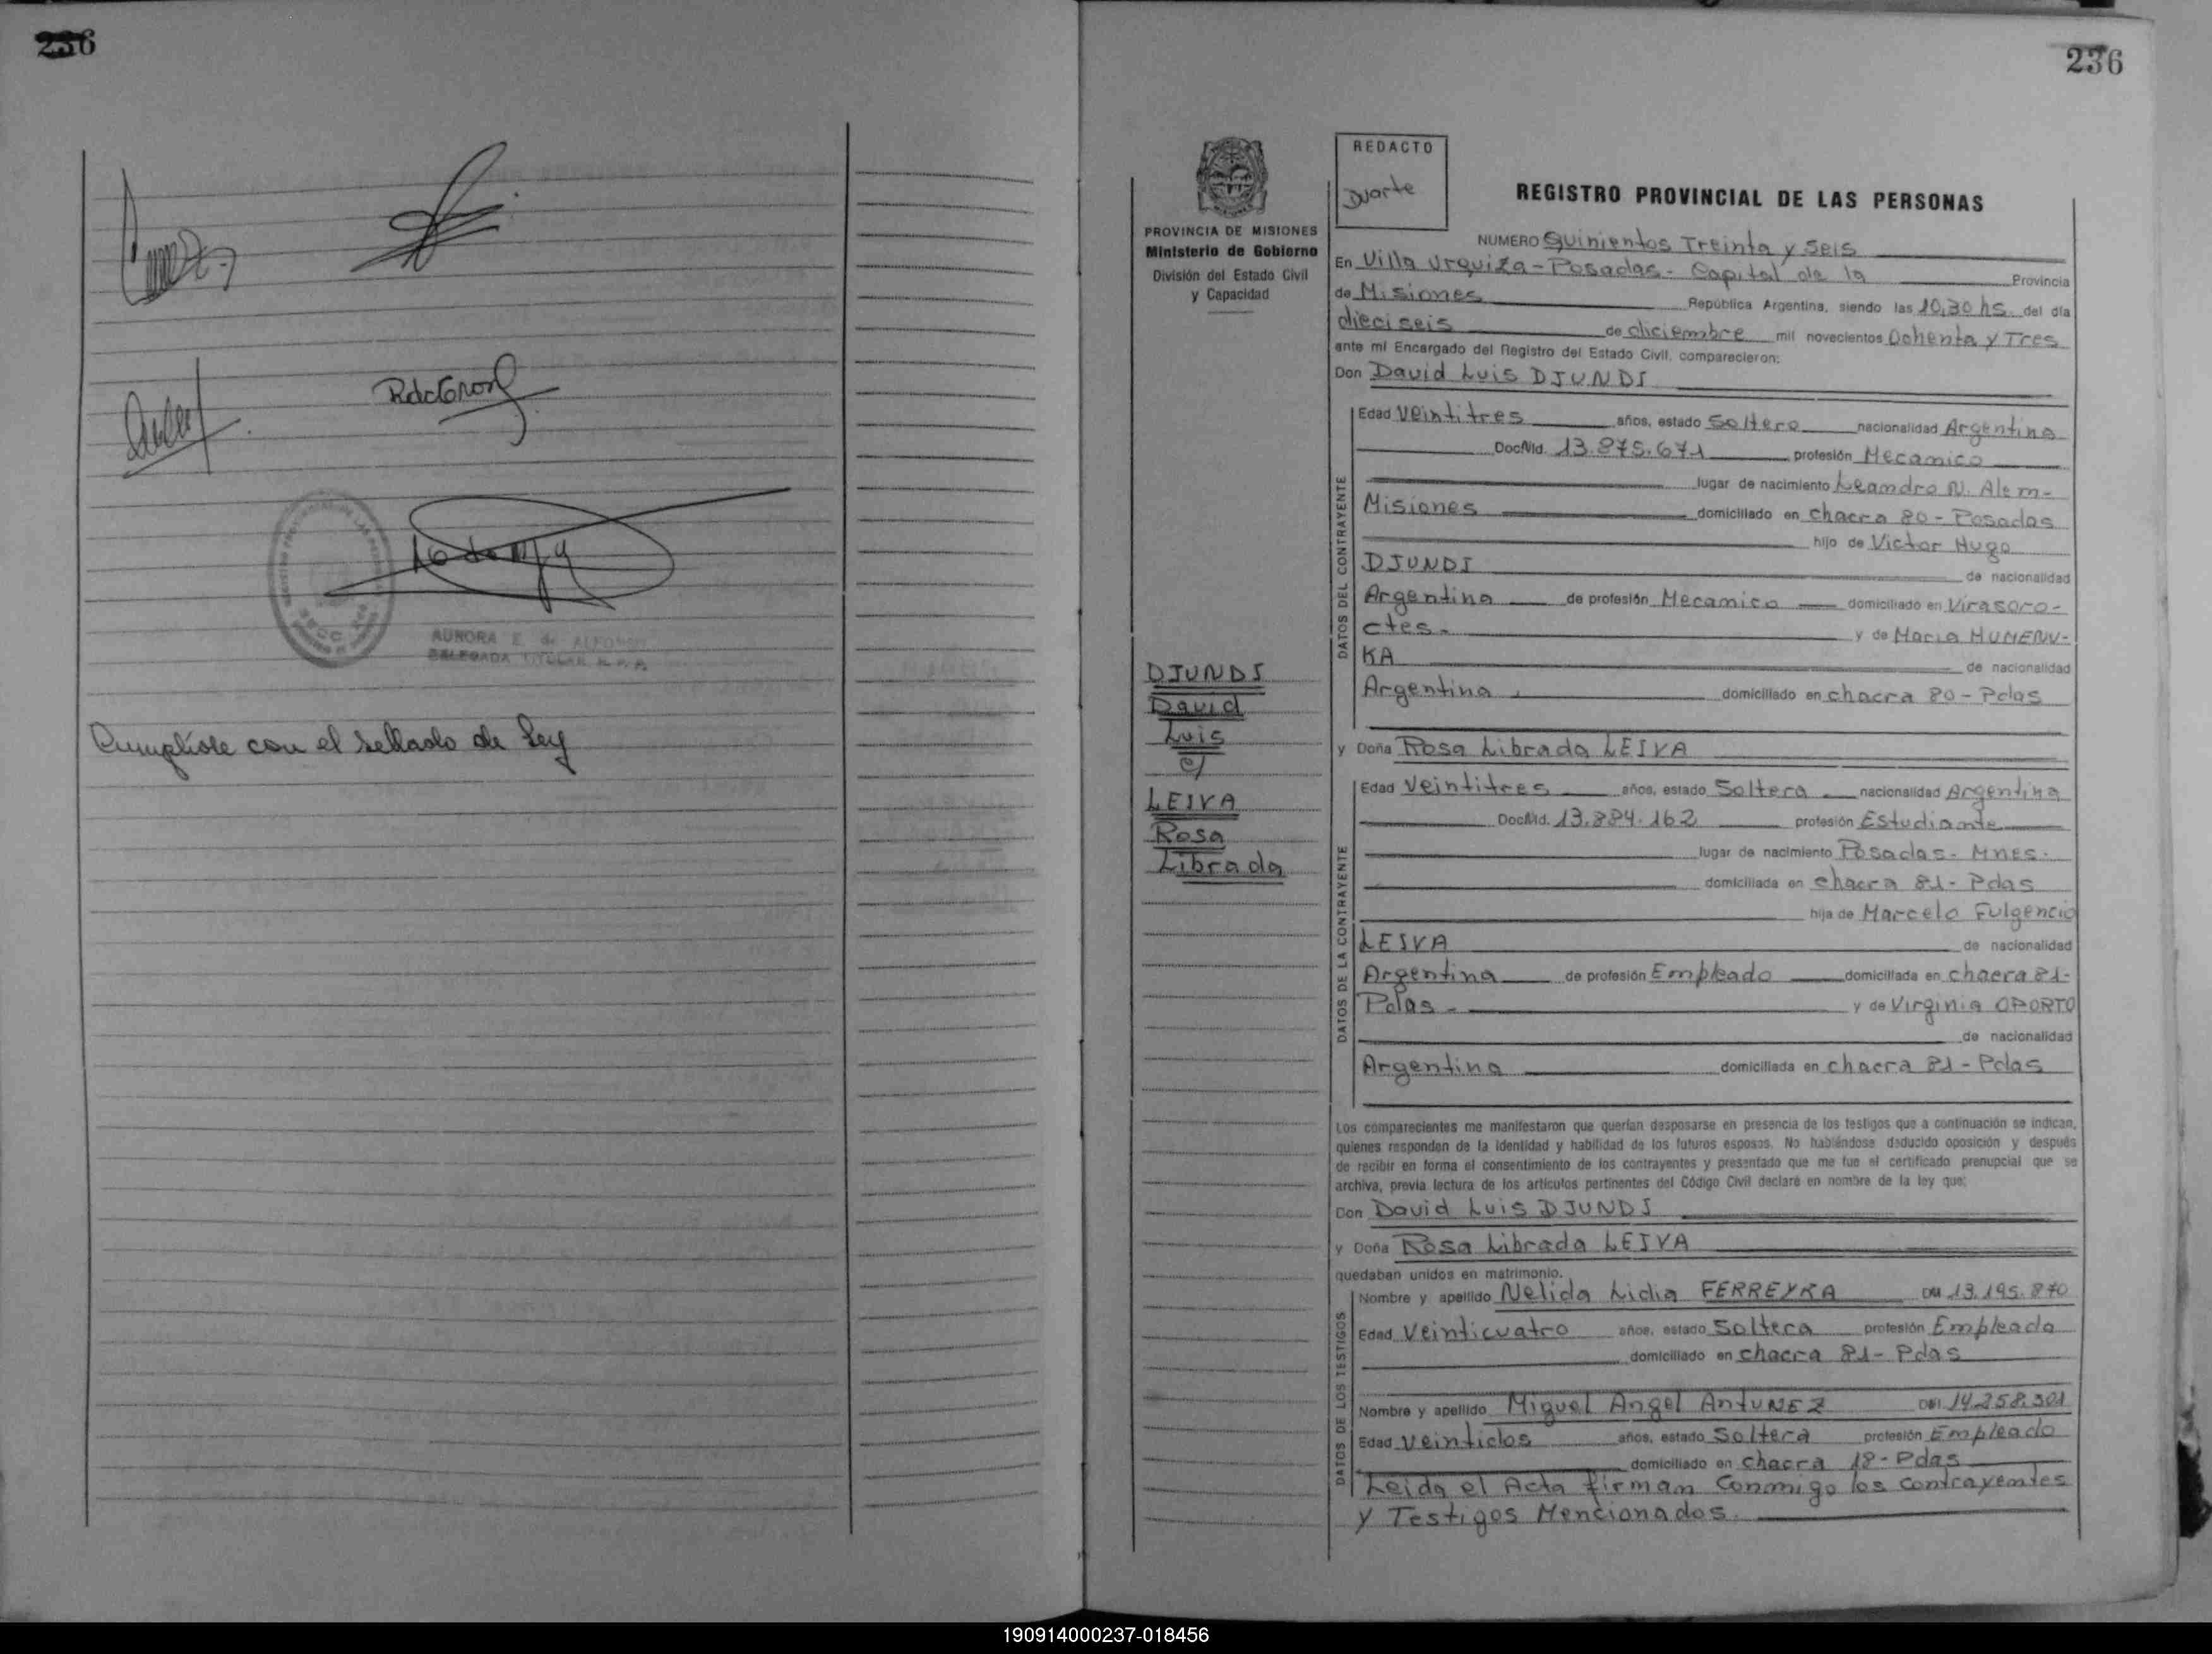 236
Cumpliose con el sellado de Ley
AURORA E. de ALFONSO
DELEGADA TITULAR R.P.P.
236
PROVINCIA DE MISIONES
Ministerio de Gobierno
División del Estado Civil
y Capacidad
DJUNDI
David
Luis
c/
LEIVA
Rosa
Librada
REDACTO
Duarte
REGISTRO PROVINCIAL DE LAS PERSONAS
NUMERO Quinientos Treinta y Seis
En Villa Urquiza - Posadas - Capital de la Provincia
de Misiones República Argentina, siendo las 10,30 hs del día
dieciseis de diciembre mil novecientos Ochenta y Tres
ante mí Encargado del Registro del Estado Civil, comparecieron:
Don David Luis DJUNDI
DATOS DEL CONTRAYENTE
Edad Veintitres años, estado Soltero nacionalidad Argentina
Doc.Nid. 13.875.671 profesión Mecanico
lugar de nacimiento Leandro N. Alem-
Misiones domiciliado en chacra 80 - Posadas
hijo de Victor Hugo
DJUNDI de nacionalidad
Argentina de profesión Mecanico domiciliado en Virasoro-
ctes. y de Maria HUMENU-
KA de nacionalidad
Argentina domiciliado en chacra 80 - Pdas
y Doña Rosa Librada LEIVA
DATOS DE LA CONTRAYENTE
Edad Veintitres años, estado Soltera nacionalidad Argentina
Doc.Nid. 13.884.162 profesión Estudiante
lugar de nacimiento Posadas - Mnes.
domiciliada en chacra 81 - Pdas
hija de Marcelo Fulgencio
LEIVA de nacionalidad
Argentina de profesión Empleado domiciliada en chacra 81-
Pdas - y de Virginia OPORTO
de nacionalidad
Argentina domiciliada en chacra 81 - Pdas
Los comparecientes me manifestaron que querían desposarse en presencia de los testigos que a continuación se indican,
quienes responden de la identidad y habilidad de los futuros esposos. No habiéndose deducido oposición y después
de recibir en forma el consentimiento de los contrayentes y presentado que me fue el certificado prenupcial que se
archiva, previa lectura de los artículos pertinentes del Código Civil declaré en nombre de la ley que:
Don David Luis DJUNDI
y Doña Rosa Librada LEIVA
quedaban unidos en matrimonio.
DATOS DE LOS TESTIGOS
Nombre y apellido Nelida Lidia FERREYRA DNI 13.195.870
Edad Veinticuatro años, estado Soltera profesión Empleada
domiciliado en chacra 81 - Pdas
Nombre y apellido Miguel Angel AntUNEZ DNI 14.258.301
Edad Veintidos años, estado Soltera profesión Empleado
domiciliado en chacra 18 - Pdas
Leida el Acta firman Conmigo los Contrayentes
y Testigos Mencionados.
190914000237-018456